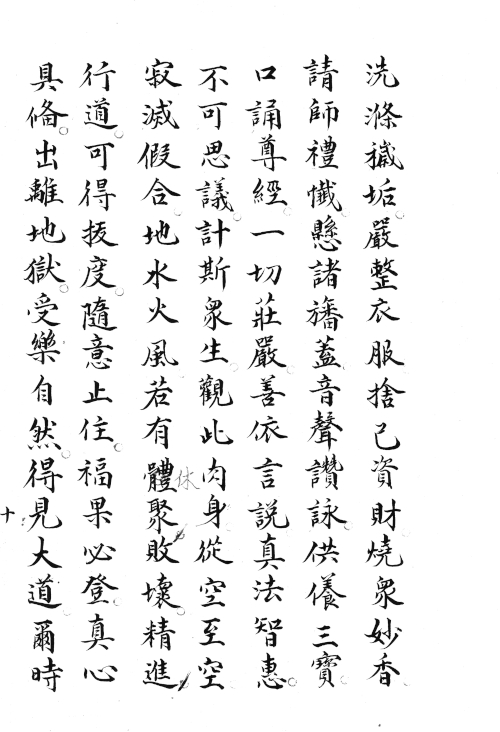 洗滌穢垢嚴整衣服捨己資財燒衆妙香
請師禮懺懸諸旛蓋音聲讚詠供養三寶
口誦尊經一切莊嚴善依言說真法智惠
不可思議計斯衆生觀此肉身從空至空
寂滅假合地水火風若有體聚敗壞精進
休
行道可得拔度隨意止住福果必登真心
具俻出離地獄受樂自然得見大道爾時
十